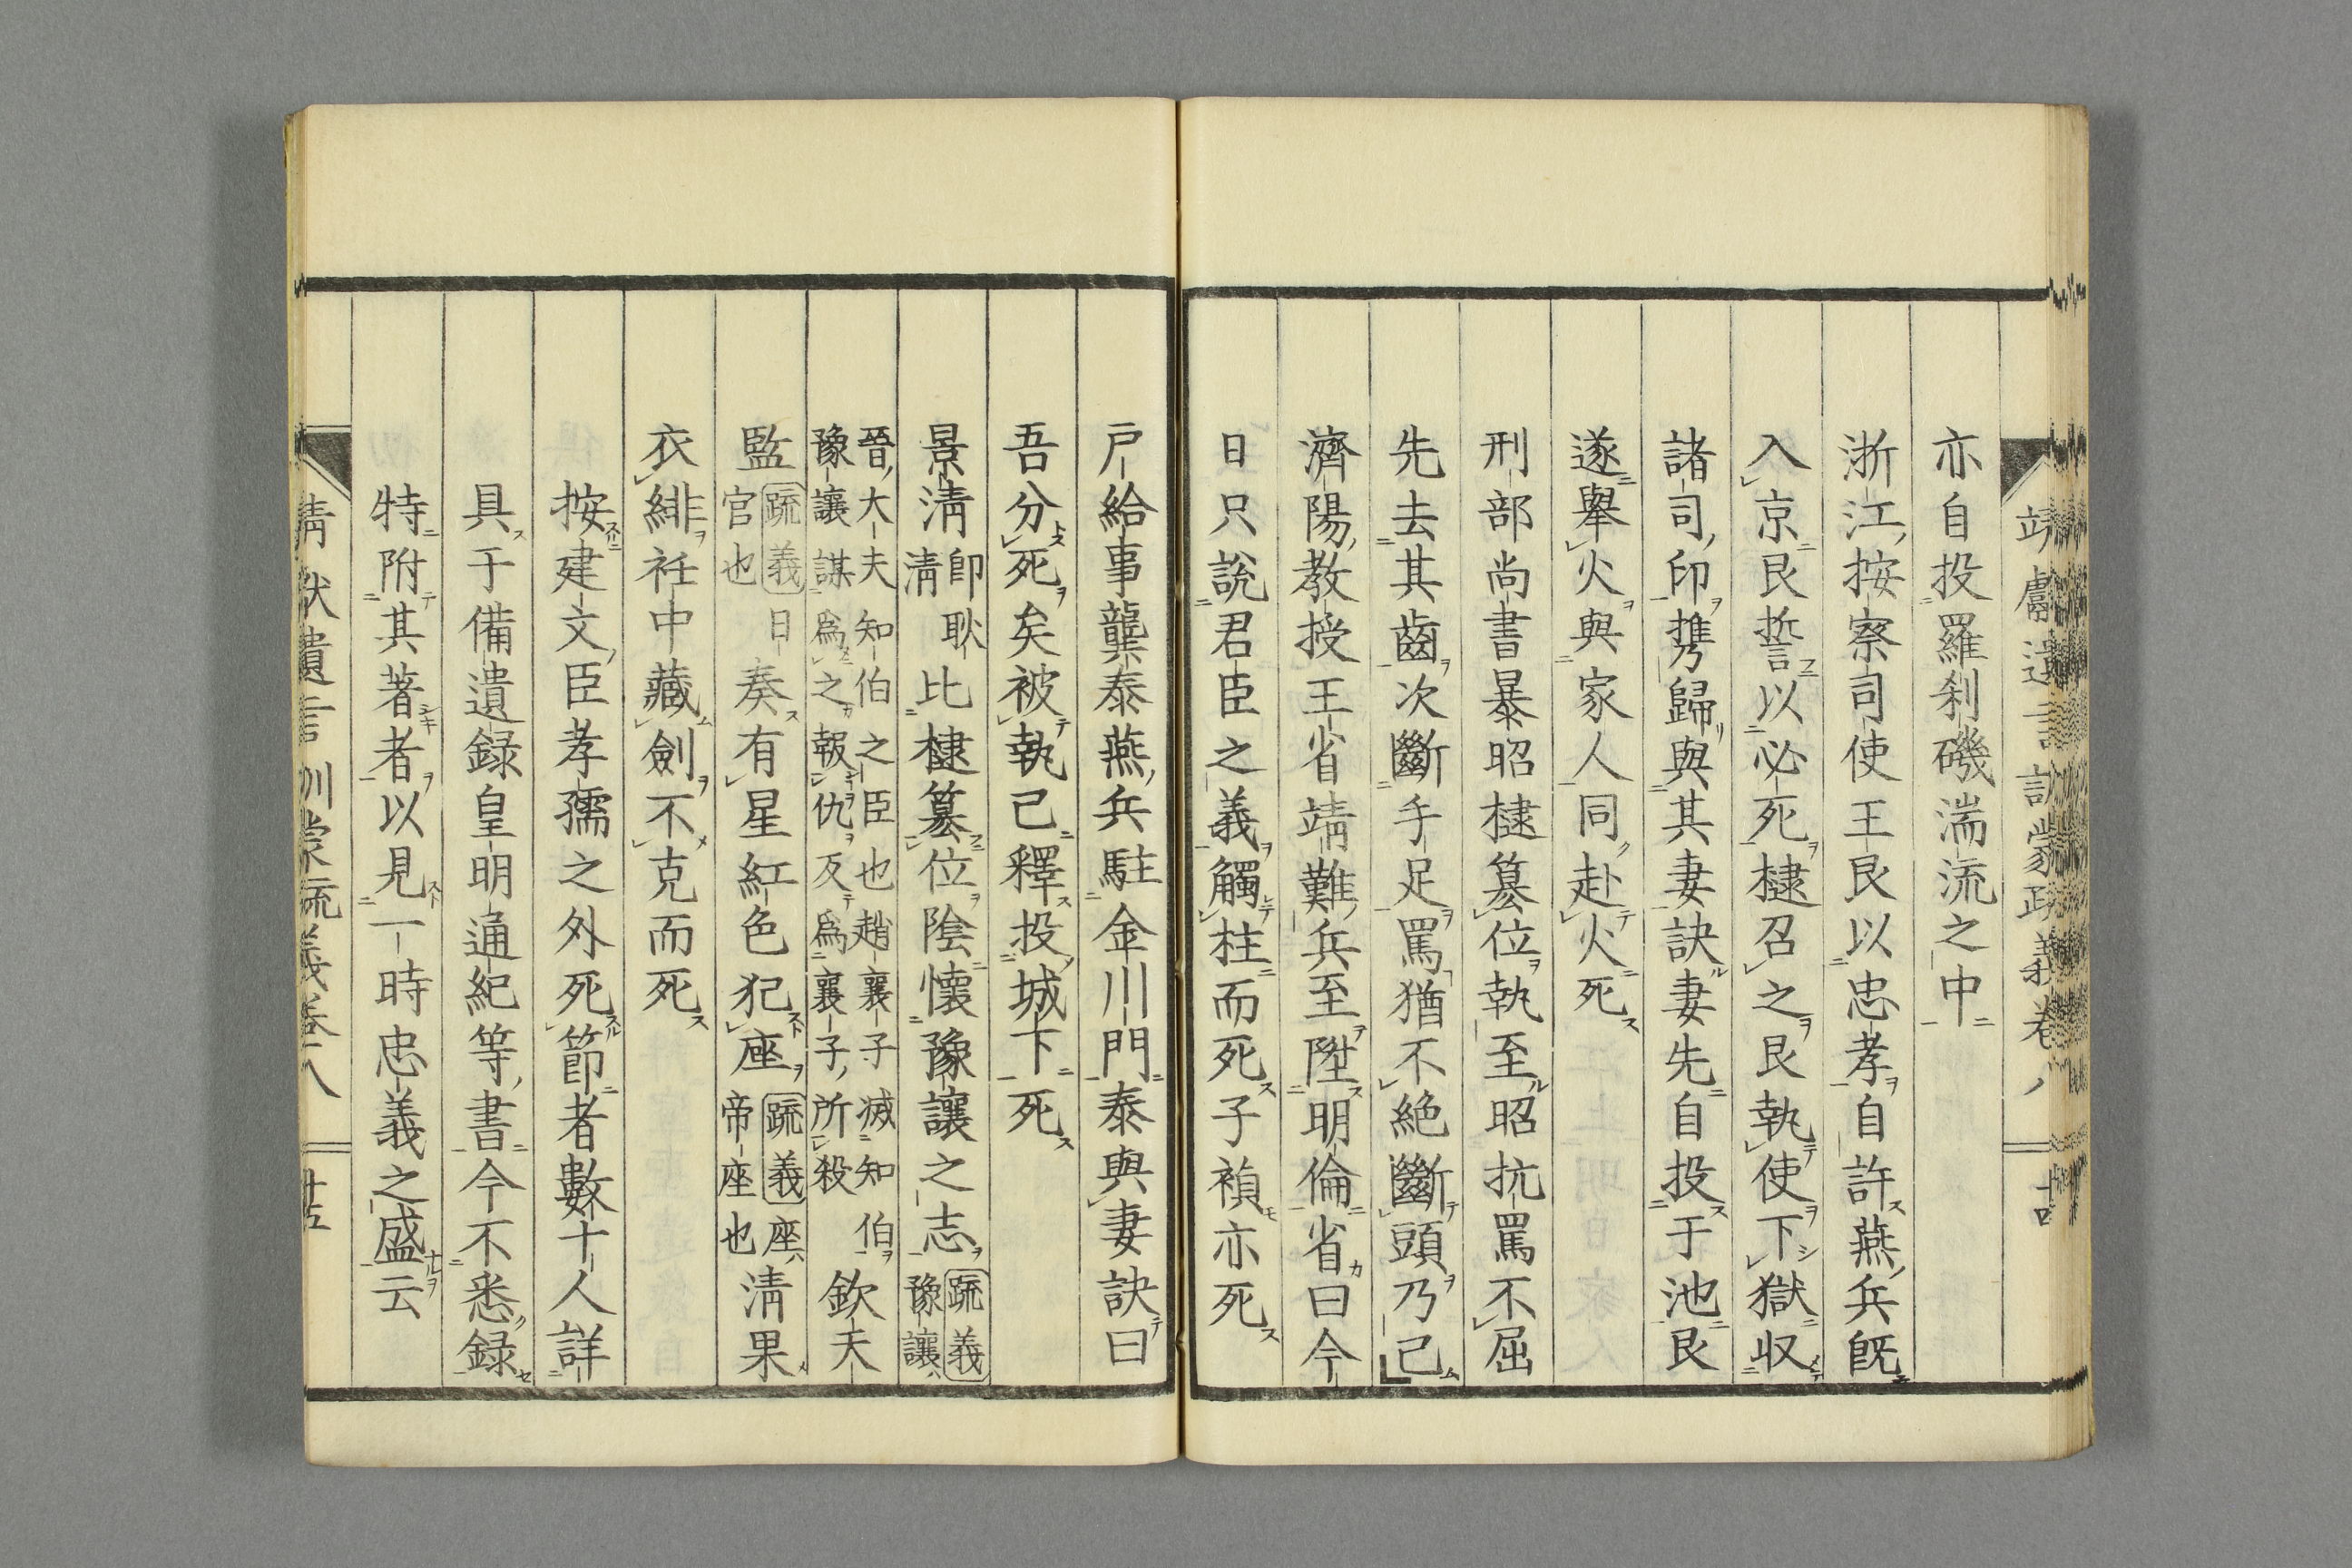 亦自投羅刹磯湍流之中
浙江按察司使王艮以忠孝自許燕兵既
入京艮誓以必死棣召之艮執使下獄収
諸司印携歸與其妻訣妻先自投于池艮
遂舉火與家人同赴火死
刑部尚書暴昭棣簒位執至昭抗罵不屈
先去其齒次斷手足罵猶不絶斷頭乃已
濟陽教授王省靖難兵至陞明倫省曰今
日只説君臣之義觸柱而死子禎亦死
戸給事龔泰燕兵駐金川門泰與妻訣曰
吾分死矣被執已釋投城下死
景清
卽耿
清
比棣簒位陰懷豫讓之志
疏義
豫讓
晉大夫知伯之臣也趙襄子滅知伯
豫讓謀爲之報仇反爲襄子所殺
欽天
監
疏義
官也
曰奏有星紅色犯座
疏義座
帝座也
清果
衣緋衽中藏劍不克而死
按建文臣孝孺之外死節者數十人詳
具于備遺録皇明通紀等書今不悉録
特附其著者以見一時忠義之盛云
靖獻遺言訓蒙疏義卷八